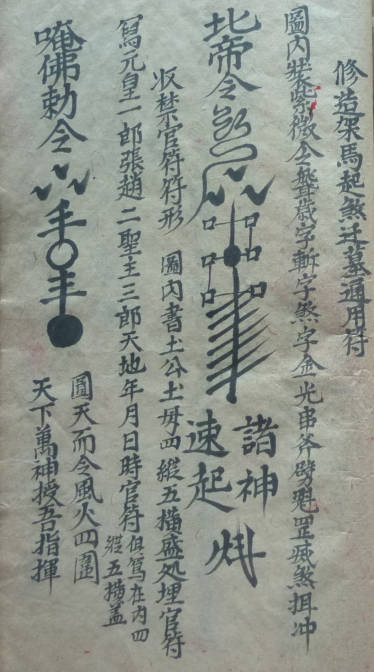 修造架馬起煞迁墓通用符
圖内裝紫微令聻歳字斬字煞字金光串斧劈魁罡疯煞揖冲
北帝令
諸神
速起
收禁官符符形 圖内書土公土毋四縱五横盛処埋官符
寫元皇一郎張趙二聖主三郎天地年月日時官符
但寫在内四
縱五横盖
唵佛勅令
圓天而令風火四圓
天下萬神授吾指揮